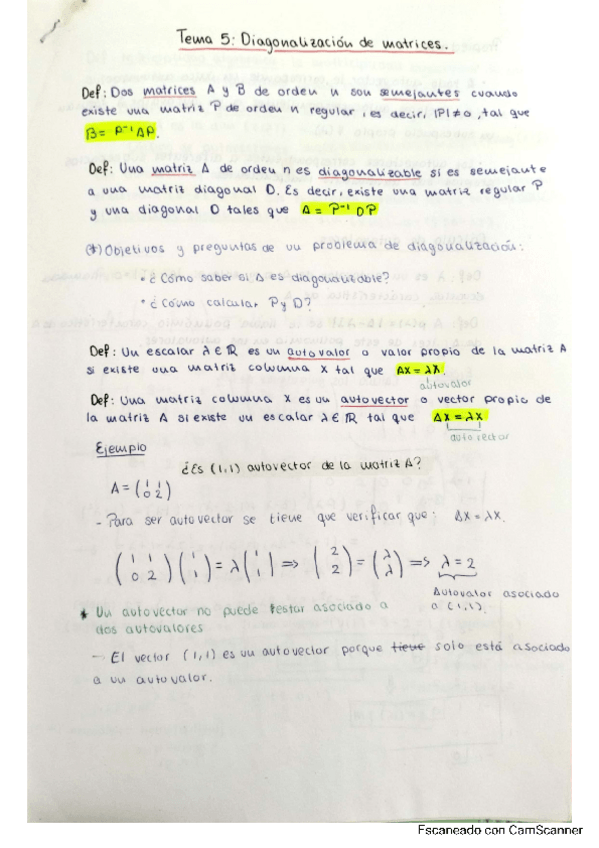 Tema 5: Diagonalización de matrices.
Def: Dos matrices A y B de orden n son semejantes cuando
existe una matriz P de orden n regular, es decir, |P|≠0, tal que
B = P⁻¹AP.
Def: Una matriz A de orden n es diagonalizable si es semejante
a una matriz diagonal D. Es decir, existe una matriz regular P
y una diagonal D tales que A = P⁻¹DP
(*) Objetivos y preguntas de un problema de diagonalización:
· ¿Cómo saber si A es diagonalizable?
· ¿Cómo calcular P y D?
Def: Un escalar λ∈ℝ es un autovalor o valor propio de la matriz A
si existe una matriz columna X tal que AX = λX.
autovalor
Def: Una matriz columna X es un autovector o vector propio de
la matriz A si existe un escalar λ∈ℝ tal que AX = λX
autovector
Ejemplo
¿Es (1,1) autovector de la matriz A?
A = (1 1
0 2)
- Para ser autovector se tiene que verificar que: AX = λX.
(1 1
0 2) (1
1) = λ (1
1) => (2
2) = (λ
λ) => λ = 2
Autovalor asociado
a (1,1).
* Un autovector no puede estar asociado a
dos autovalores
→ El vector (1,1) es un autovector porque tiene solo está asociado
a un autovalor.
Escaneado con CamScanner